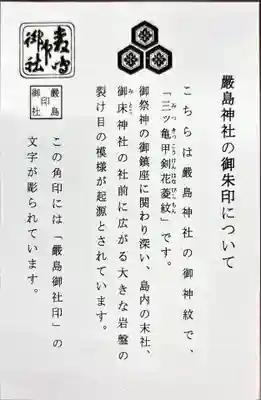 嚴島神社の御朱印について
こちらは嚴島神社の御神紋で、
「三ツ亀甲剣花菱紋」です。
みつきっこうけんはなびしもん
御祭神の御鎮座に関わり深い、島内の末社、
御床神社の社前に広がる大きな岩盤の
みとこ
裂け目の模様が起源とされています。
嚴島
御社
印
この角印には「嚴島御社印」の
文字が彫られています。